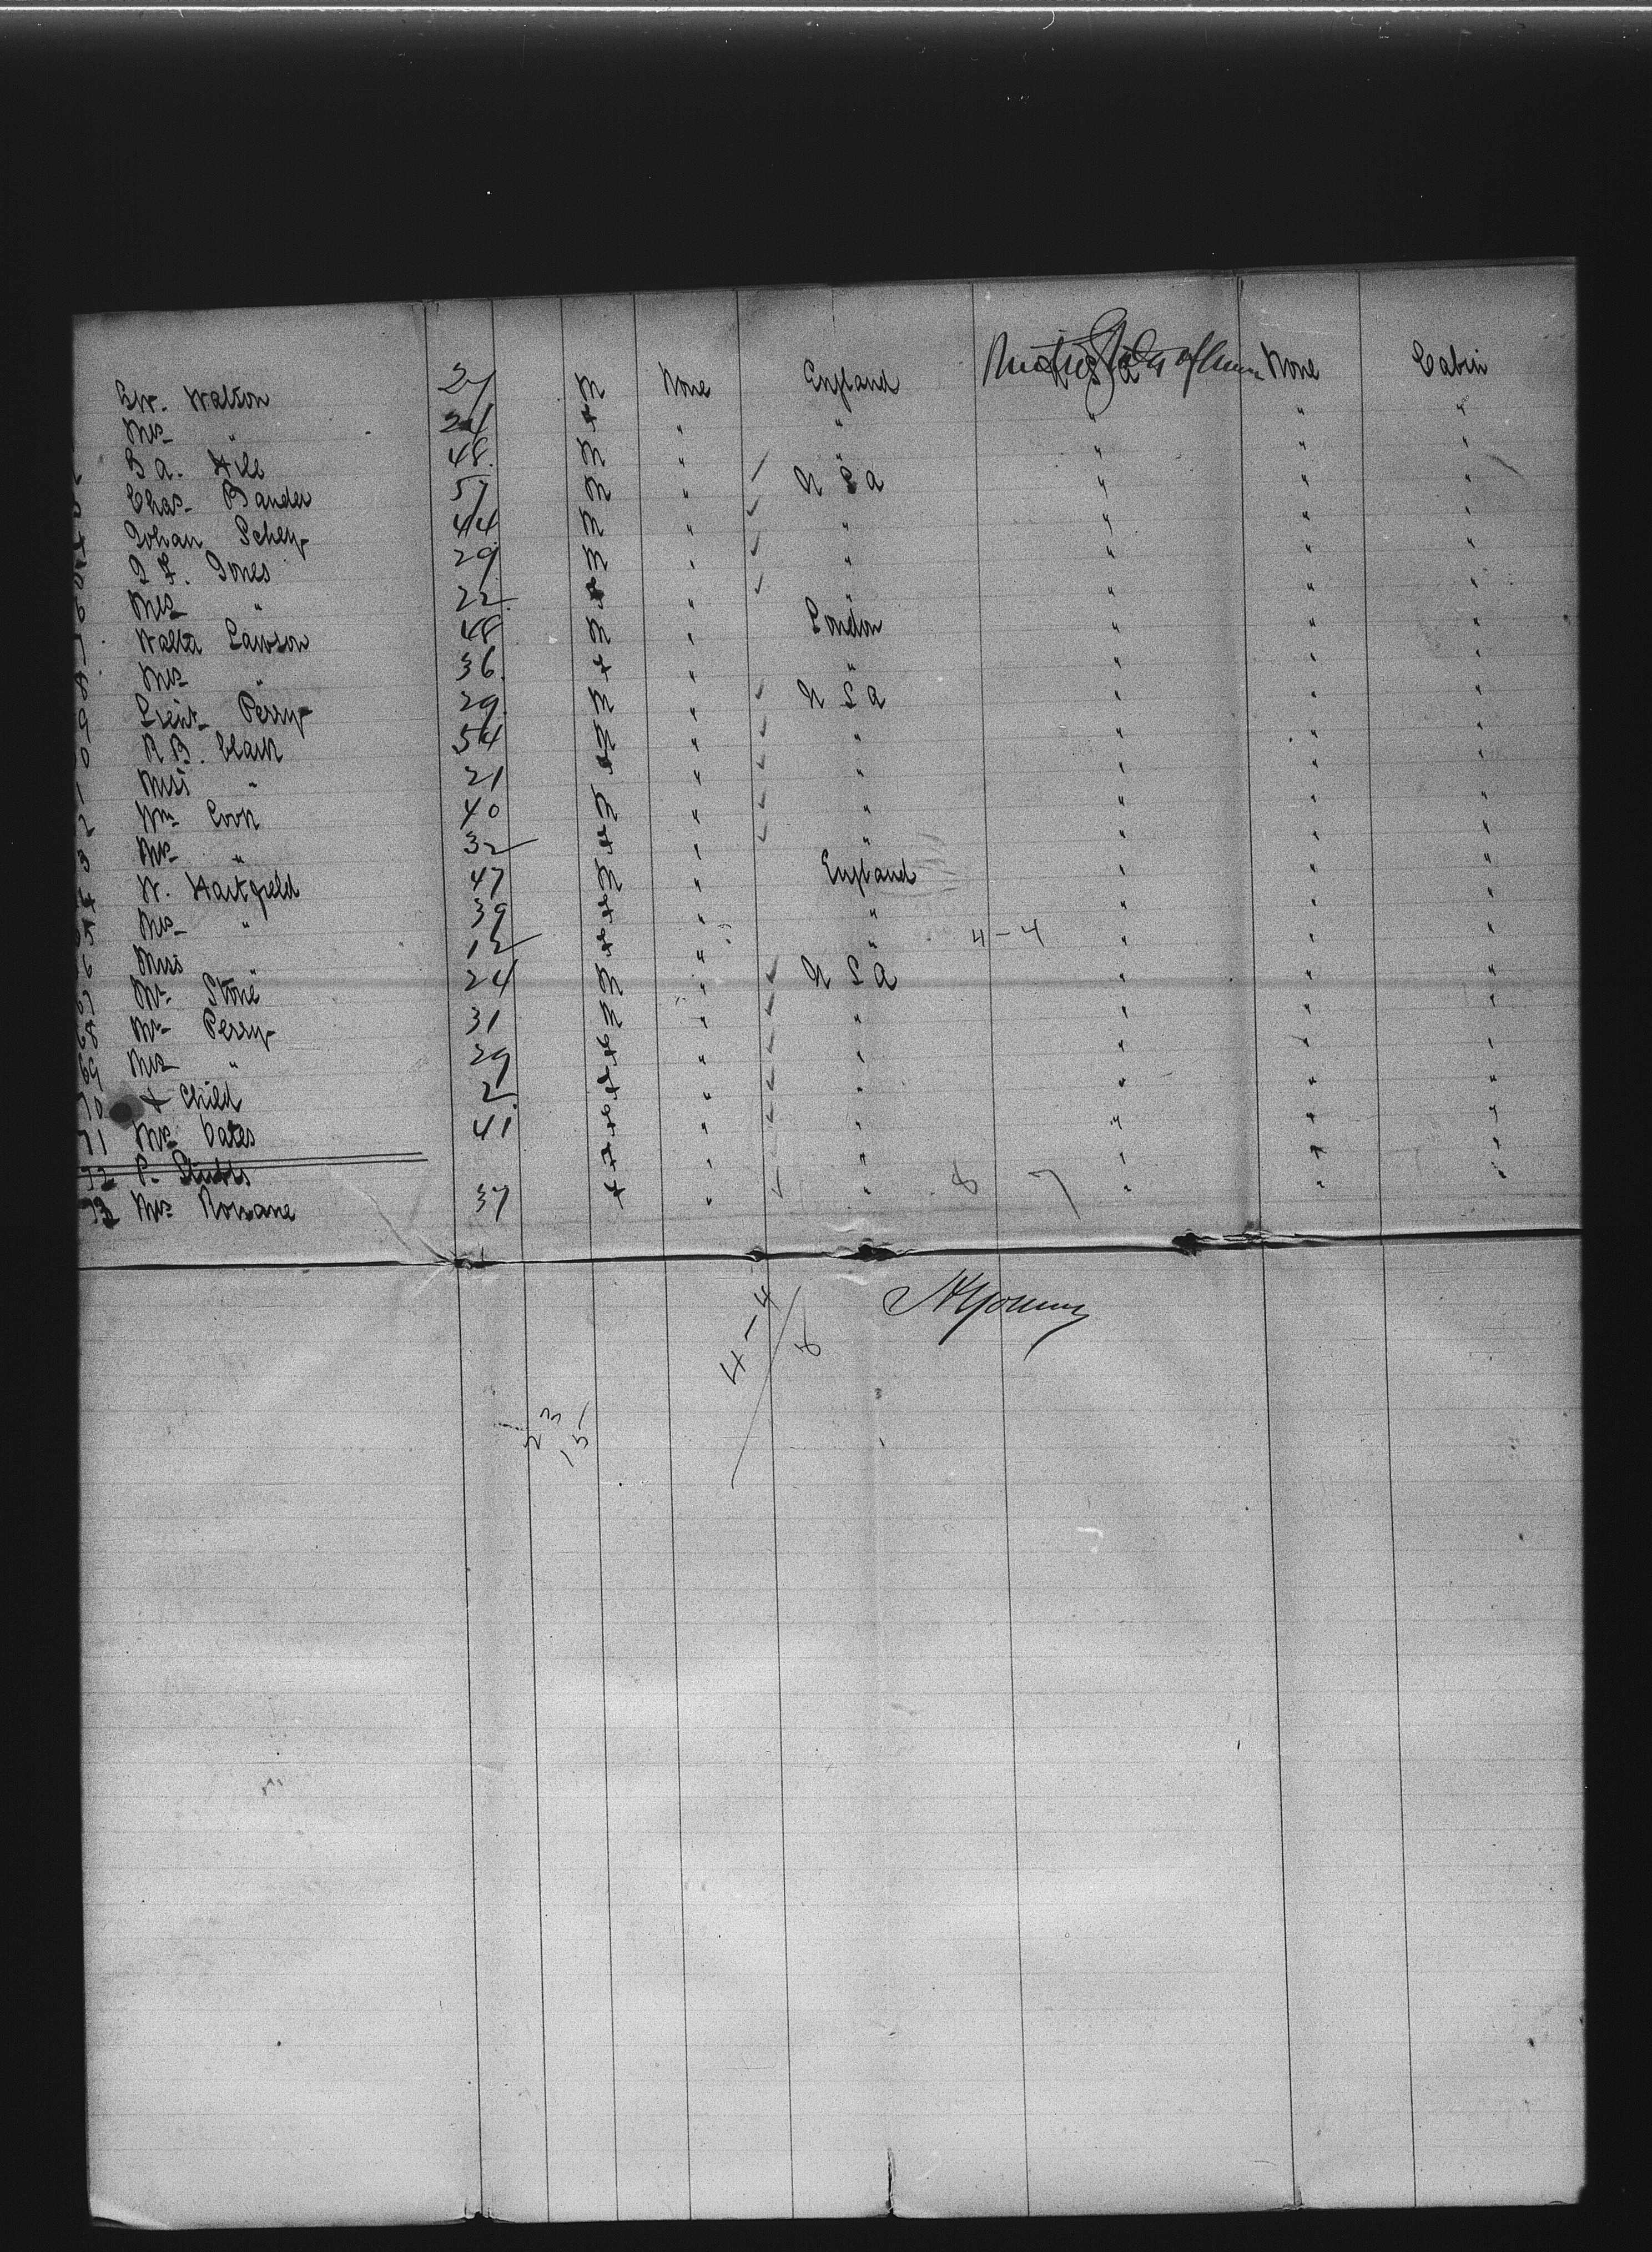 Walton 27 M None England United States of None Cabin
Mrs " 24 f " " " " "
B A. 48 M " " " " "
Chas. Bander 57 M " U S A " " "
Johan Schey 44 M " " " " "
J F. Jones 29 M " " " " "
Mrs " 22 f " " " " "
Walter Lawson 48 M " London " " "
Mrs " 36 f " " " " "
Lieut Perry 29 M " U S A " " "
R B. Clark 54 M " " " " "
Miss " 21 f " " " " "
Wm Cook 40 M " " " " "
Mrs " 32 f " " " " "
W. Hartfield 47 M " England " " "
Mrs " 39 f " " " " "
Miss " 12 f " " 4-4 " " "
Mr. Stone 24 M " U S A " " "
68 Mr Perry 31 M " " " " "
69 Mrs " 29 f " " " " "
70 + Child 2 f " " " " "
71 Mrs 41 f " " " " "
72 P. Stubbs f " " " " "
73 Mrs 37 f " " 8 7 " " "
4-4
8
23
15